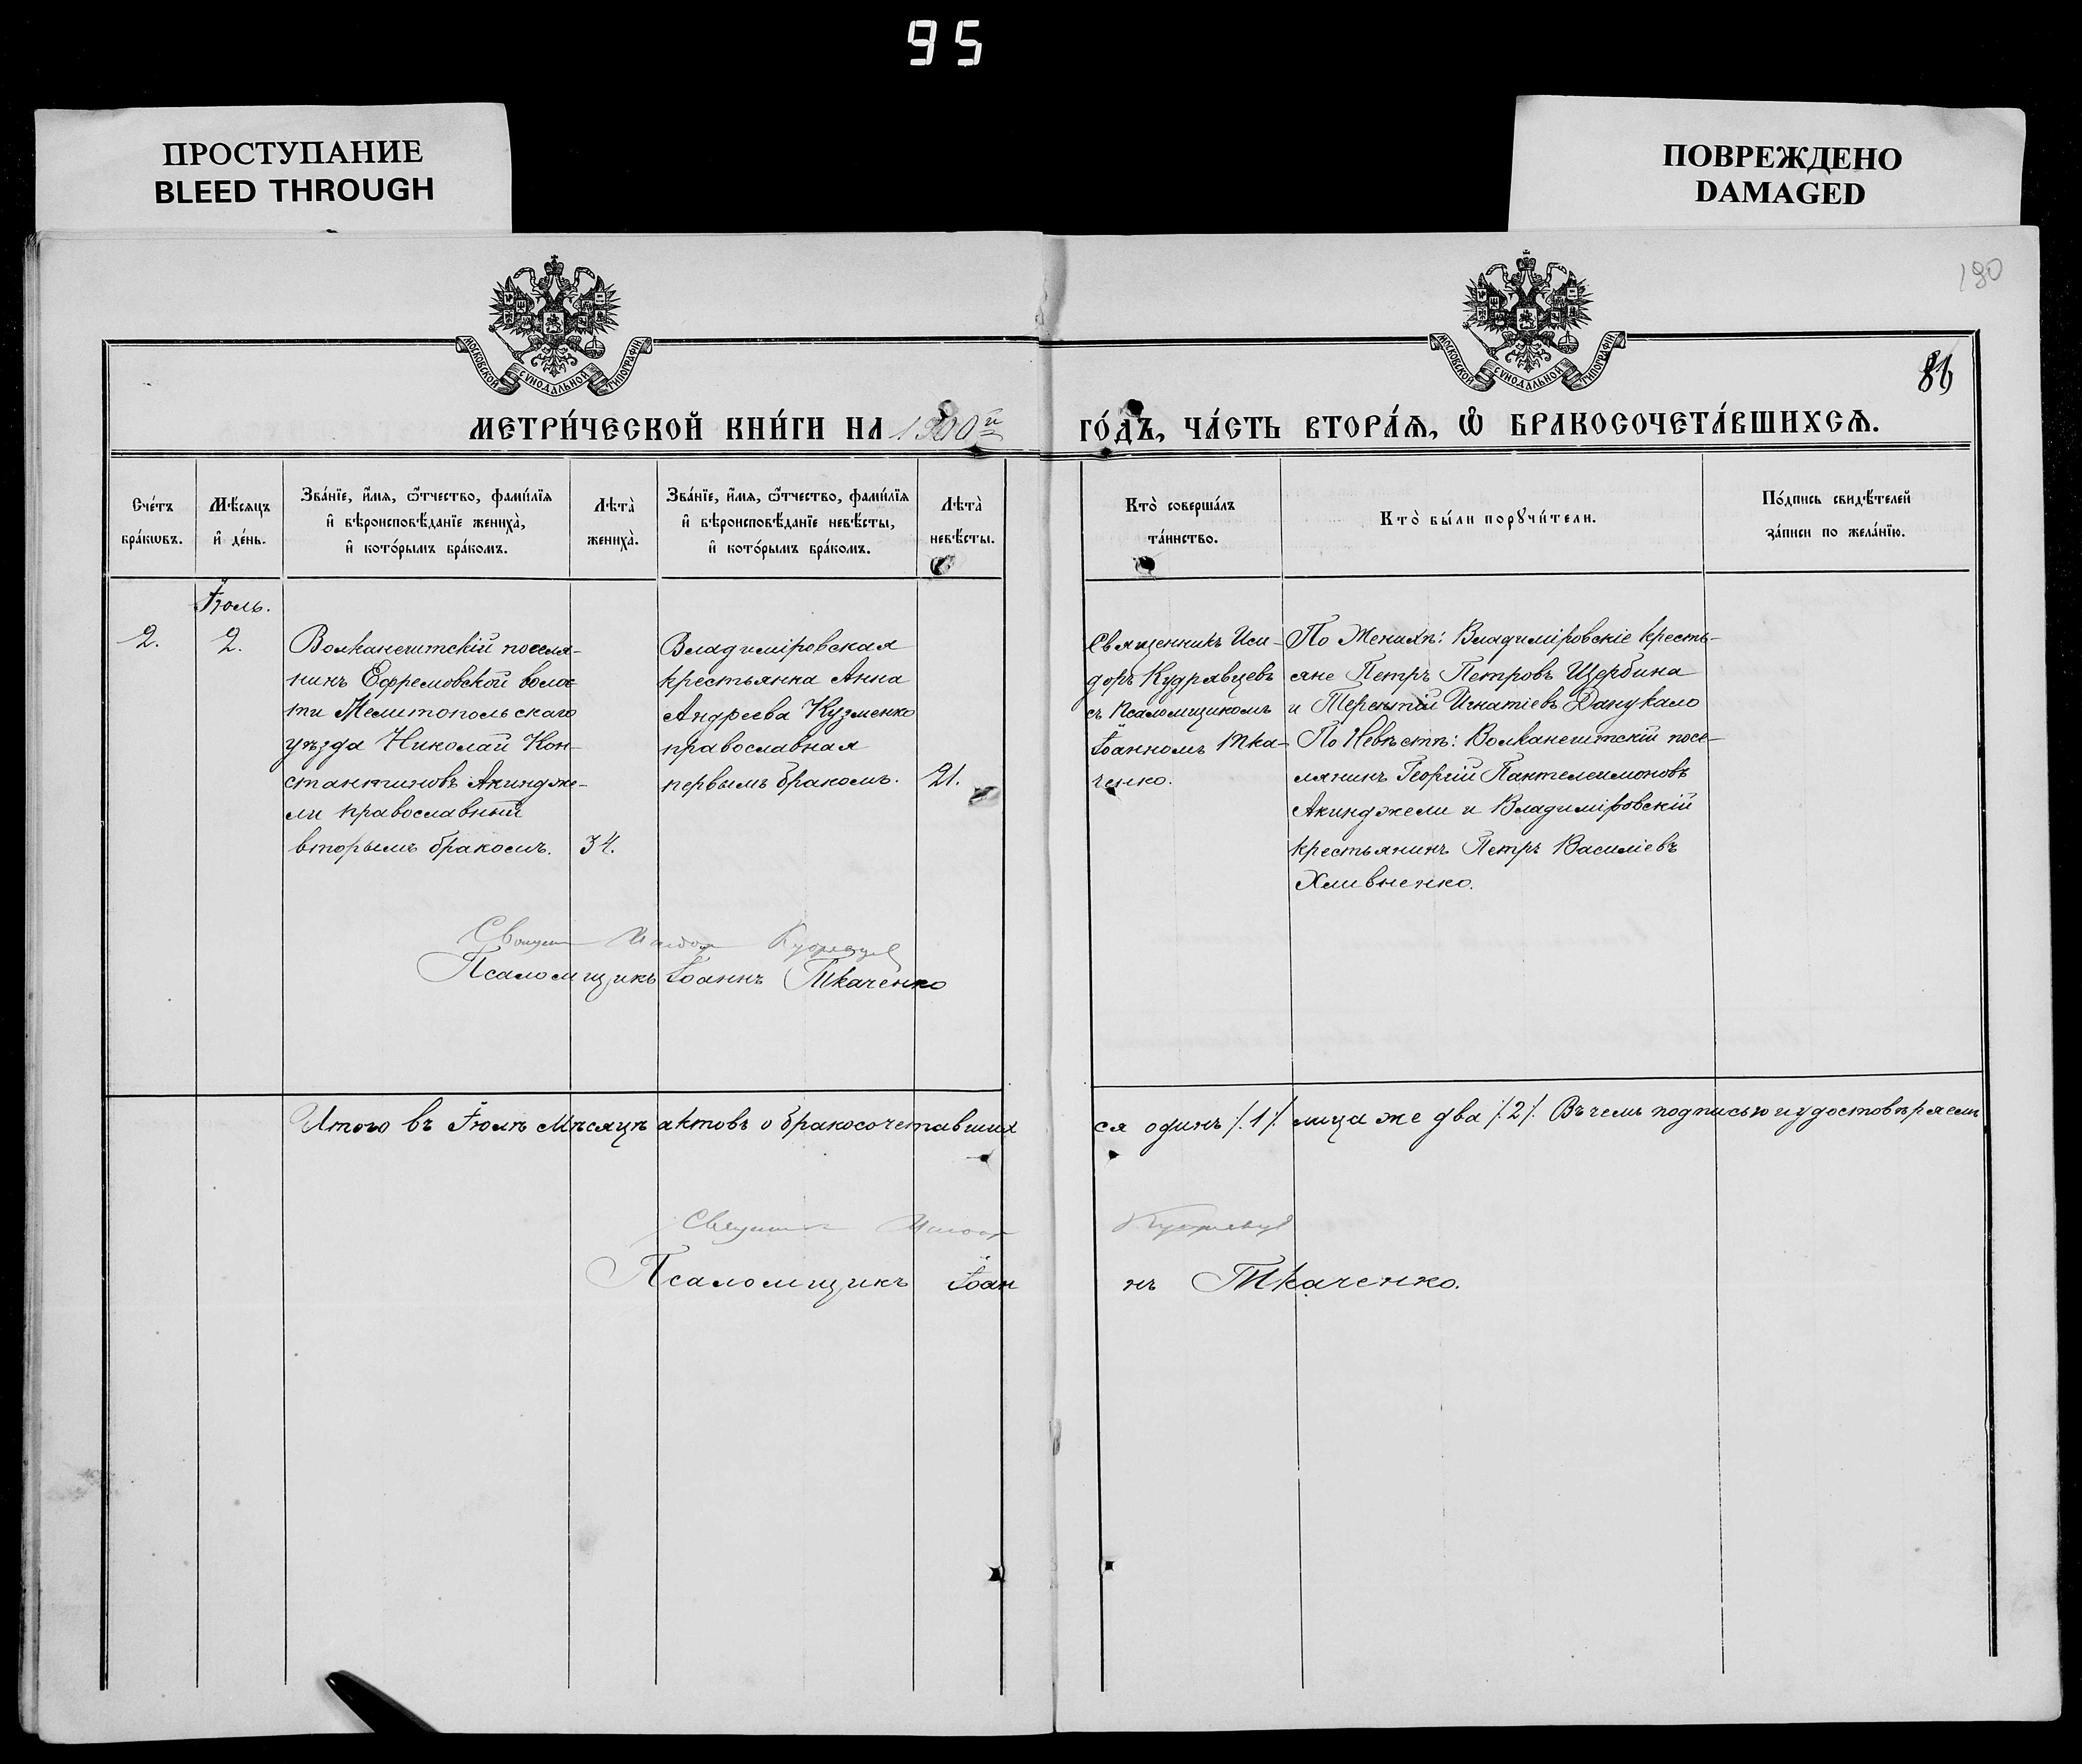 95
ПРОСТУПАНИЕ
BLEED THROUGH
ПОВРЕЖДЕНО
DAMAGED
МОСКОВСКОЙ СѴНОДАЛЬНОЙ ТИПОГРАФІИ
МОСКОВСКОЙ СѴНОДАЛЬНОЙ ТИПОГРАФІИ
190
МЕТРИ́ЧЕСКОЙ КНИ́ГИ НА 1900й ГО́ДЪ, ЧА́СТЬ ВТОРА́Ѧ, Ѡ҆ БРАКОСОЧЕТА́ВШИХСѦ.
Сче́тъ бра́кѡвъ.
Мѣ́сяцъ и҆ де́нь.
Зва́нїе, и҆́мѧ, ѻ҆́тчество, фами́лїѧ
и҆ вѣроисповѣ́данїе жениха̀,
и҆ кото́рымъ бра́комъ.
Лѣта̀ жениха̀.
Зва́нїе, и҆́мѧ, ѻ҆́тчество, фами́лїѧ
и҆ вѣроисповѣ́данїе невѣ́сты,
и҆ кото́рымъ бра́комъ.
Лѣта̀ невѣ́сты.
Кто̀ соверша́лъ
та́инство.
Кто̀ бы́ли порꙋчи́тели.
По́дпись свидѣ́телей
за́писи по жела́нїю.
Іюль.
2.
2.
Волканештскій поселя-
нинъ Ефремовской волос
ти Мелитопольскаго
уѣзда Николай Кон-
стантиновъ Акиндже-
ли православный
вторымъ бракомъ. 34.
Владиміровская
крестьянка Анна
Андреева Кузменко
православная
первымъ бракомъ. 21.
Священникъ Иси-
доръ Кудрявцевъ
съ Псаломщикомъ
Іоанномъ Тка-
ченко.
По Женихѣ: Владиміровскіе кресть-
яне Петръ Петровъ Щербина
и Терентій Игнатіевъ Данукало
По Невѣстѣ: Волканештскій посе-
лянинъ Георгій Пантелеимоновъ
Акинджели и Владиміровскій
крестьянинъ Петръ Василіевъ
Хливненко.
Священ Исидор Кудрявцев
Псаломщикъ Іоаннъ Ткаченко
Итого въ Іюлѣ мѣсяцѣ актовъ о бракосочетавших ся одинъ /.1/. лица же два /.2/. Въ чемъ подписью и удостовѣряемъ
Священник Исидор Кудрявцев
Псаломщикъ Іоан нъ Ткаченко.